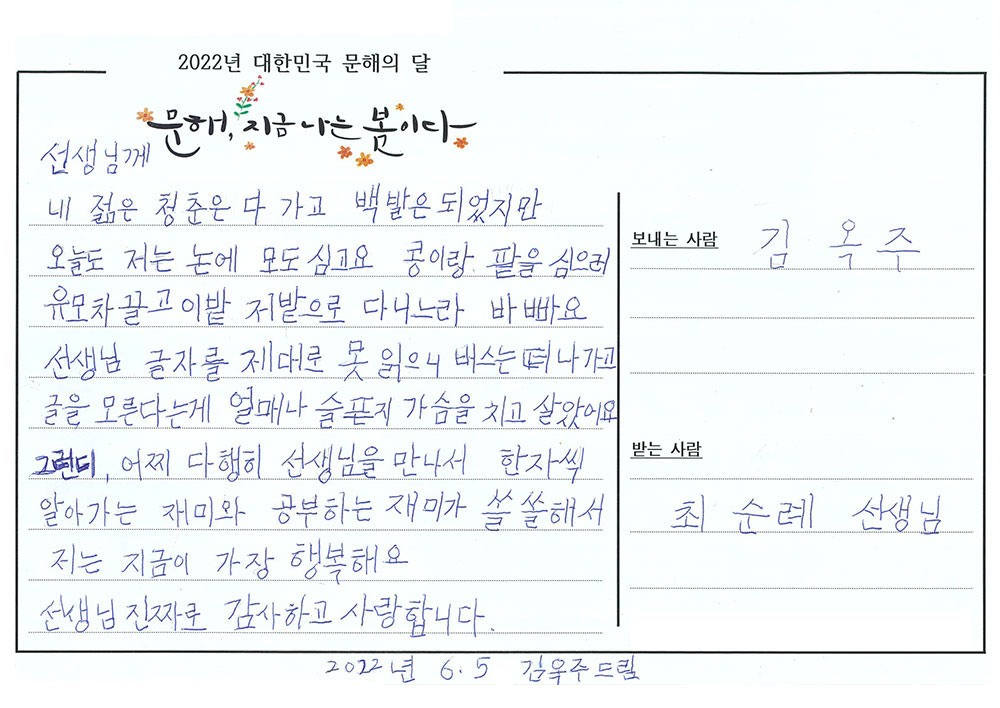 2022년 대한민국 문해의 달
문해, 지금 나는 봄이다
선생님께
내 젊은 청춘은 다 가고 백발은 되었지만
오늘도 저는 논에 모도 심고요 콩이랑 팥을 심으러
유모차 끌고 이밭 저밭으로 다니느라 바빠요
선생님 글자를 제대로 못 읽으니 버스는 떠나가고
글을 모른다는게 얼매나 슬픈지 가슴을 치고 살았어요
그런디, 어찌 다행히 선생님을 만나서 한자씩
알아가는 재미와 공부하는 재미가 쏠쏠해서
저는 지금이 가장 행복해요
선생님 진짜로 감사하고 사랑합니다.
보내는 사람 김옥주
받는 사람
최순례 선생님
2022년 6.5 김옥주드림